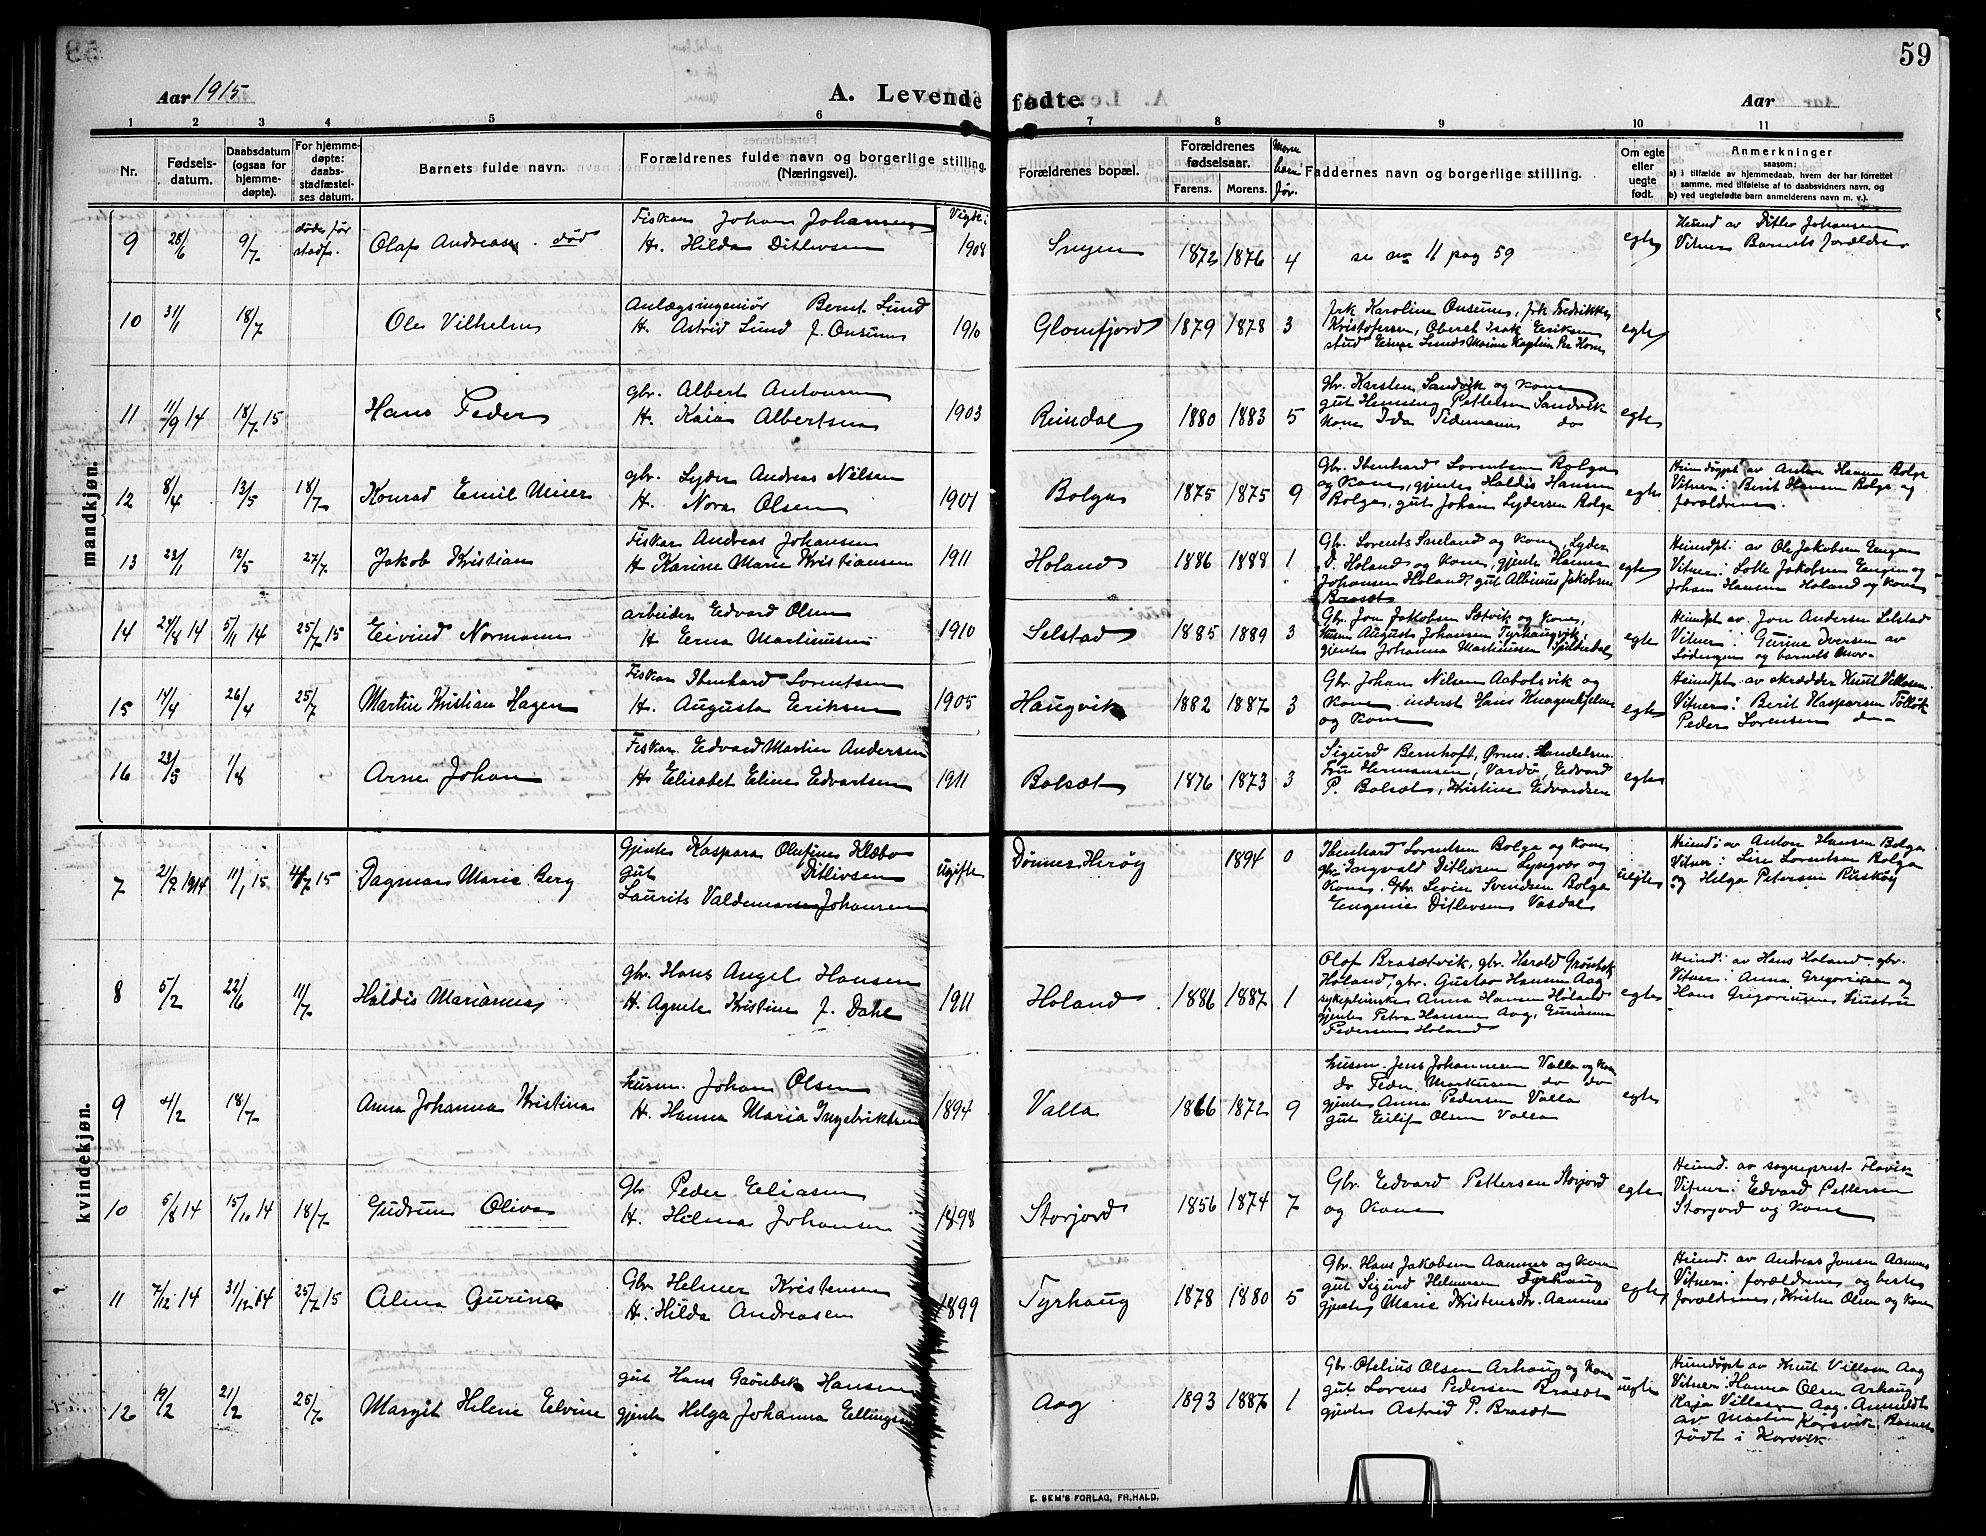 59
Aar 1915
A. Levende fødte.
Aar
1 2 3 4 5 6 7 8 9 10 11
Nr.
Fødsels-
datum.
Daabsdatum
(ogsaa for
hjemme-
døpte).
For hjemme-
døpte:
daabs-
stadfæstel-
ses datum.
Barnets fulde navn.
Forældrenes fulde navn og borgerlige stilling.
(Næringsvei).
Forældrenes bopæl.
Forældrenes
fødselsaar.
Farens. Morens.
Faddernes navn og borgerlige stilling.
Om egte
eller
uegte
født.
Anmerkninger
saasom:
a) i tilfælde av hjemmedaab, hvem der har forrettet
samme, med tilføielse af to daabsvidners navn, og
b) ved uegtefødte barn anmelderens navn m. v.).
mandkjøn.
9 9/7 døde før
stadf.
Olaf Andreas død
Fisker Johan Johansen
H. Hilda Ditlevsen
Vigde i
1908
1872 1876 4
se no 11 pag 59
egte
Heimd av Ditlev Johansen
Vitner Barnets forældre
10 31/1 18/7
Ole Vilhelm
Anlægsingeniør Bernt Lund
H. Astrid Lund f. Onsum
1910
Glomfjord 1879 1878 3
frk Karoline Onsum, frk Fredrikke
Kristofersen, Oberst Isak Eriksen
stud Einar Lund, Marine Kaptein Per Horn
egte
11 11/9 14 18/7 15
Hans Peder
gbr. Albert Antonsen
H. Kaia Albertsen
1903
Reindal 1880 1883 5
Gbr. Karsten Sandvik og kone
gut Henning Pettersen Sandvik
kone Ida Tidemann do
egte
12 8/4 13/5 18/7
Konrad Emil Meier
gbr. Lyder Andreas Nilsen
H. Nora Olsen
1901
Bolga 1875 1875 9
Gbr. Ibenhard Lorentsen Bolga
og kone, gjente Haldis Hansen
Bolga, gut Johan Lydersen Bolga
egte
Heimdøpt av Anton Hansen Bolga
Vitner: Berit Hansen Bolga og
forældrene.
13 12/5 27/7
Jakob Kristian
Fisker Andreas Johansen
H Karine Marie Kristiansen
1911
Holand 1886 1888 1
Gbr. Lorents Sneland og kone, Lyder
D. Holand og kone, gjente Hanna
Johansen Holand, gut Albinus Jakobsen
Brasæt
egte
Heimdpt: av Ole Jakobsen Engen
Vitner: Lotte Jakobsen Engen og
Johan Hansen Holand og kone
14 24/8 14 5/11 14 25/7 15
Eivind Normann
arbeider Edvard Olsen
H Erna Martinussen
1910
Selstad 1885 1889 3
Gbr. Jon Jakobsen Sætvik og kone,
husm August Johansen Tyrhaugvik,
gjente Johanna Martinussen Spilderdal
egte
Heimdpt av. Jon Andersen Selstad
Vitner: Gurine Iversen av
Lødengen og barnets mor
15 14/4 26/4 25/7
Martin Kristian Hagen
Fisker Ibenhard Lorentsen
H. Augusta Eriksen
1905
Haugvik 1882 1887 3
Gbr Johan Nilsen Aabotsvik og
kone. inderst Hans Knagenhjelm
og kone
egte
Heimdpt. av skrædder Knut Villasen.
Vitner: Berit Kaspersen Tollåk
Peder Sorensen do
16 23/5 1/8
Arne Johan
Fisker Edvard Martin Andersen
H. Elisabet Eline Edvartsen
1911
Bolsæt 1876 1873 3
Sigurd Bernhoft, Ørnes Handelsm.
Fru Hermansen, Vardø, Edvard
P. Bolsæt, Kristine Edvardsen
egte
kvindekjøn.
7 11/1 15 4/7 15
Dagmar Marie Berg
Gjente Kaspara Olufine Klæbo
gut Ditlivsen
Laurits Valdemar Johansen
Ugifte
Dønnes Herøy 1894 0
Ibenhard Lorentsen Bolga og kone
gbr Ingvald Ditlevsen Lysgvær og
kone. Gbr Levin Svendsen Bolga
Eugenie Ditlevsen Vasdal
uegte
Heimd: av Anton Hansen Bolga
Vitner: Lise Lorentsen Bolga
og Helga Petersen Ruskøy
8 5/2 22/6 11/7
Haldis Marianne
gbr. Hans Angel Hansen
H. Agnete Kristine f. Dahl
1911
Holand 1886 1887 1
Olaf Brasætvik, gbr. Harald Grønbek
Holand, gbr. Gustav Hansen Aag
sykepleierske Anna Hansen Holand
gjente Petra Hansen Aag, Eurianna
Pedersen Holand
egte
Heimd: av Hans Holand gbr.
Vitner: Anna Gregoriusen og
Hans Gregoriusen
9 4/2 18/7
Anna Johanna Kristina
husm. Johan Olsen
H. Hanna Maria Ingebriktsen
1894
Valla 1866 1872 9
husm. Jens Johannesen Valla og kone
do Peder Markusen do do
gjente Anna Pedersen Valla
gut Eilif Olsen Valla
egte
10 5/8 14 15/10 14 18/7
Gudrun Oliva
Gbr Peder Eliasen
H. Hilma Johansen
1898
Storjord 1856 1874 7
Gbr. Edvard Pettersen Storjord
og kone
egte
Heimd. av sogneprest
Vitner: Edvard Pettersen
Storjord og kone
11 7/12 14 31/12 14 25/7 15
Alma Gurine
Gbr Helmer Kristensen
H. Hilda Andreasen
1899
Tyrhaug 1878 1880 5
Gbr. Hans Jakobsen Aamnes og kone
gut Sigurd Helmersen Tyrhaug
gjente Marie Kristensdtr. Aamnes
egte
Heimd: av Andreas Jensen Aamnes
Vitner: forældrene og beste
forældrene, Kristen Olsen og kone
12 19/2 21/2 25/7
Margit Helene Elvine
gut Hans Grønbek Hansen
gjente Helga Johanna Ellingsen
Aag 1893 1887 1
Gbr. Otelius Olsen Arhaug og kone
gut Lorens Pedersen Brasæt
gjente Astrid P. Brasæt
uegte
Heimdøpt av Knut Villasen Aag
Vitner: Hanna Olsen Arhaug
Kaja Villasen Aag. Anmeldt
av Martin Korsvik, Barnet
født i Korsvik
E. SEM'S FORLAG, FR.HALD.